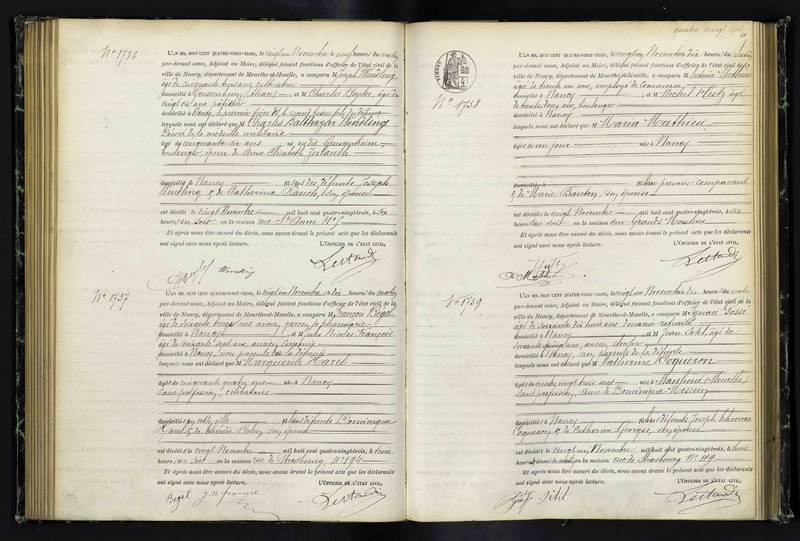 Nº 1736
L'AN MIL HUIT CENT QUATRE-VINGT-TROIS, le vingt un Novembre à neuf heures du matin
par-devant nous, Adjoint au Maire, délégué faisant fonctions d'officier de l'état civil de la
ville de Nancy, département de Meurthe-et-Moselle, a comparu M Joseph Windling
âgé de cinquante ans, cultivateur
domicilié à Grussenheim, (Alsace) et M Charles Boyler, âgé de
vingt six ans, pâtissier
domicilié à Nancy, le premier frère et le second beau fils du défunt
lesquels nous ont déclaré que M Charles Balthazar Windling
Décoré de la médaille militaire
âgé de cinquante six ans né à Grussenheim
boulanger, époux de Anne Elisabeth
domicilié à Nancy fils des défunts Joseph
Windling & de Catherine Rauch, son épouse
est décédé le vingt Novembre mil huit cent quatre-vingt-trois, à six
heures du soir en la maison rue Ste Anne Nº 5
Et après nous être assuré du décès, nous avons dressé le présent acte que les déclarants
ont signé avec nous après lecture. L'OFFICIER DE L'ÉTAT CIVIL,
Nº 1737
L'AN MIL HUIT CENT QUATRE-VINGT-TROIS, le vingt un Novembre à dix heures du matin
par-devant nous, Adjoint au Maire, délégué faisant fonctions d'officier de l'état civil de la
ville de Nancy, département de Meurthe-et-Moselle, a comparu M François Bégel
âgé de soixante ans, ancien garçon de pharmacie
domicilié à Nancy et M Jules Nicolas François
âgé de soixante sept ans, ancien
domicilié à Nancy, non parents de la défunte
lesquels nous ont déclaré que M Marguerite Harel
âgée de cinquante quatre ans née à Nancy
sans profession, célibataire
domiciliée en cette ville fille des défunts Dominique
Harel & de Thérèse Colin, son épouse
est décédée le vingt Novembre mil huit cent quatre-vingt-trois, à trois
heures du soir en la maison rue de Strasbourg, Nº 194
Et après nous être assuré du décès, nous avons dressé le présent acte que les déclarants
ont signé avec nous après lecture. L'OFFICIER DE L'ÉTAT CIVIL,
Begel
quatre vingt
Nº 1738
L'AN MIL HUIT CENT QUATRE-VINGT-TROIS, le vingt un Novembre dix heures du matin
par-devant nous, Adjoint au Maire, délégué faisant fonctions d'officier de l'état civil de la
ville de Nancy, département de Meurthe-et-Moselle, a comparu M Mathieu
âgé de trente un ans, employé de commerce
domicilié à Nancy et M Michel âgé
de trente deux ans, boulanger
domicilié à Nancy
lesquels nous ont déclaré que M Maria Mathieu
âgée de un jour née à Nancy
domicilié à fille du premier comparant
& de Marie son épouse
est décédée le vingt Novembre mil huit cent quatre-vingt-trois, à six
heures du soir en la maison rue Grands Moulins
Et après nous être assuré du décès, nous avons dressé le présent acte que les déclarants
ont signé avec nous après lecture. L'OFFICIER DE L'ÉTAT CIVIL,
Nº 1739
L'AN MIL HUIT CENT QUATRE-VINGT-TROIS, le vingt un Novembre à dix heures du matin
par-devant nous, Adjoint au Maire, délégué faisant fonctions d'officier de l'état civil de la
ville de Nancy, département de Meurthe-et-Moselle, a comparu M Ignace Gosse
âgé de soixante dix huit ans, retraité
domicilié à Nancy et M Jean Siht âgé de
ans, ancien
domicilié à Nancy, non parents de la défunte
lesquels nous ont déclaré que M Catherine Coqueron
âgée de quatre vingt trois ans née à (Meurthe)
sans profession, veuve de Dominique Messin
domiciliée à Nancy fille des défunts Joseph Etienne
Coqueron, & de Catherine Georges, son épouse
est décédée le vingt un Novembre mil huit cent quatre-vingt-trois, à trois
heures du matin en la maison rue de Strasbourg Nº 119
Et après nous être assuré du décès, nous avons dressé le présent acte que les déclarants
ont signé avec nous après lecture. L'OFFICIER DE L'ÉTAT CIVIL,
Siht